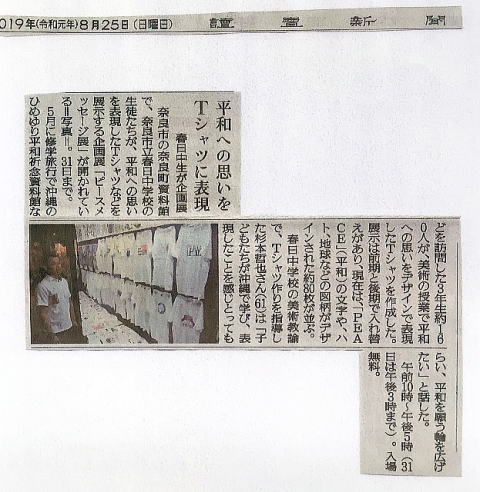 019年(令和元年)8月25日(日曜日)
讀賣新聞
平和への思いを
Tシャツに表現
春日中生が企画展
奈良市の奈良町資料館
で、奈良市立春日中学校の
生徒たちが、平和への思い
を表現したTシャツなどを
展示する企画展「ピースメ
ッセージ展」が開かれてい
る＝写真＝。31日まで。
5月に修学旅行で沖縄の
ひめゆり平和祈念資料館な
どを訪問した3年生約16
0人が、美術の授業で平和
への思いをデザインで表現
したTシャツを作成した。
展示は前期と後期で入れ替
えがあり、現在は、「PEA
CE」（平和）の文字や、ハ
ト、地球などの図柄がデザ
インされた約80枚が並ぶ。
春日中学校の美術教諭
で、Tシャツ作りを指導し
た杉本哲也さん(61)は「子
どもたちが沖縄で学び、表
現したことを感じとっても
らい、平和を願う輪を広げ
たい」と話した。
午前10時〜午後5時（31
日は午後3時まで）。入場
無料。